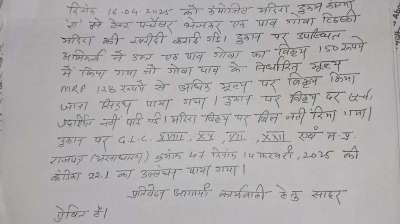 दिनांक 16.04.2025 को कम्पोजिट मदिरा दुकान
से टेस्ट परचेजर भेजकर एक पाव गोवा व्हिस्की
मदिरा की खरीदी कराई गई। दुकान पर उपस्थित
अभिकर्ता ने उक्त एक पाव गोवा का विक्रय 150 रूपये
में किया गया जो गोवा पाव के निर्धारित मूल्य
MRP 128 रूपये से अधिक मूल्य पर विक्रय किया
जाना पाया गया। दुकान पर विक्रय दर
प्रदर्शित नहीं पाई गई। मदिरा विक्रय पर बिल नहीं दिया गया।
दुकान पर G.L.C. XVIII, XX, XXI, XXII एवं म.प्र.
राजपत्र (असाधारण) क्रमांक 47 दिनांक 14 फरवरी, 2025 की
कंडिका 22.1 का उल्लंघन पाया गया।
प्रतिवेदन आगामी कार्यवाही हेतु सादर
प्रेषित है।